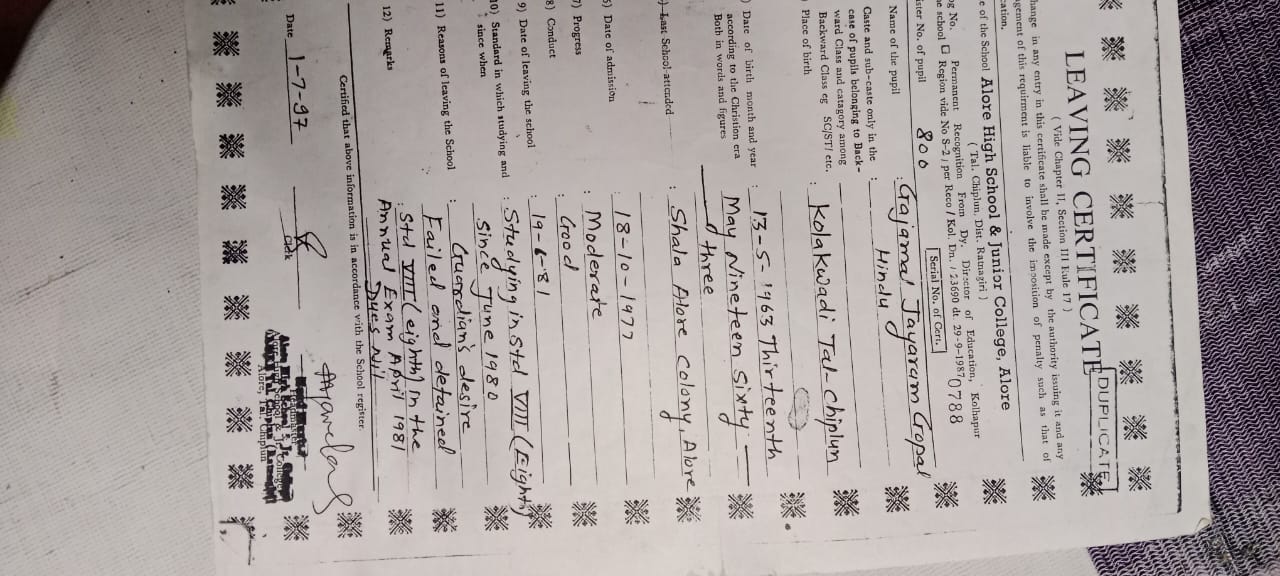 LEAVING CERTIFICATE
DUPLICATE
( Vide Chapter II, Section III Rule 17 )
hange in any entry in this certificate shall be made except by the authority issuing it and any
gement of this requirment is liable to involve the imposition of penalty such as that of
cation.
e of the School Alore High School & Junior College, Alore
( Tal. Chiplun, Dist. Ratnagiri )
og No. Permanent Recognition From Dy. Director of Education, Kolhapur
he school Region vide No S-2 / per Reco / Kol. Dn. / 23690 dt 29-9-1987 0788
ister No. of pupil 800 Serial No. of Cert.
Name of the pupil : Gajamal Jayaram Gopal
Caste and sub-caste only in the : Hindu
case of pupils belonging to Back-
ward Class and catagory among
Backward Class eg SC/ST/ etc.
) Place of birth : Kolakwadi Tal-chiplun
) Date of birth month and year : 13-5-1963 Thirteenth
according to the Christion era May Nineteen Sixty
Both in words and figures three
) Last School attended : Shala Alore colony, Alore
) Date of admission : 18-10-1977
7) Progress : Moderate
8) Conduct : Good
9) Date of leaving the school : 19-6-81
10) Standard in which studying and : Studying in Std VIII (Eighth)
since when Since June 1980
11) Reasons of leaving the School : Guardian's desire
Failed and detained
12) Remarks : Std VIII (eighth) in the
Annual Exam April 1981
Dues Nil
Certified that above information is in accordance with the School register
Date 1-7-97
Clerk
Alore, Tal. Chiplun